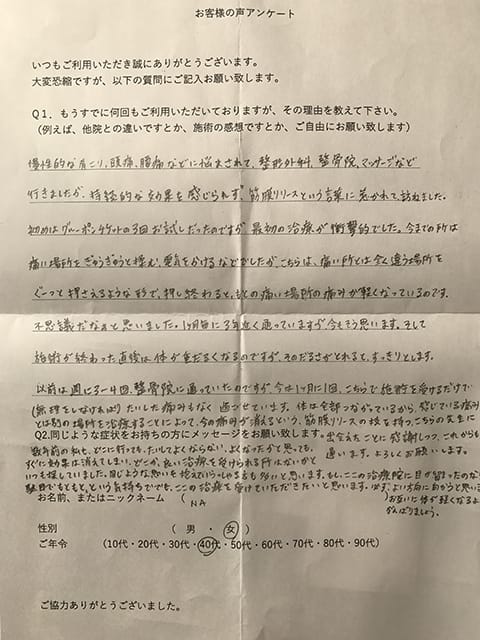 お客様の声アンケート
いつもご利用いただき誠にありがとうございます。
大変恐縮ですが、以下の質問にご記入お願い致します。
Q1．もうすでに何回もご利用いただいておりますが、その理由を教えて下さい。
（例えば、他院との違いですとか、施術の感想ですとか、ご自由にお願い致します）
慢性的な肩こり、頭痛、腰痛などに悩まされて、整形外科、整骨院、マッサージなど
行きましたが、持続的な効果を感じられず、筋膜リリースという言葉に惹かれて、訪ねました。
初めはグルーポンチケットの3回お試しだったのですが、最初の治療が衝撃的でした。今までの所は
痛い場所をぎゅうぎゅうと揉む、電気をかけるなどでしたが、こちらは、痛い所とは全く違う場所を
ぐーっと押さえるような形で、押し終わると、もとの痛い場所の痛みが軽くなっているのです。
不思議だなぁと思いました。1ヶ月毎に3年近く通っていますが、今もそう思います。そして
施術が終わった直後は体が重だるくなるのですが、そのだるさがとれると、すっきりとします。
以前は週に3〜4回、整骨院に通っていたのですが、今は1ヶ月に1回、こちらで施術を受けるだけで
（無理をしなければ）たいした痛みもなく過ごせています。体は全部つながっているから、感じている痛み
とは別の場所を治療することによって、今の痛みが消えるという、筋膜リリースの技を持つこちらの先生に
出会えたことに感謝しつつ、これからも
通います。よろしくお願いします。
Q2.同じような症状をお持ちの方にメッセージをお願い致します。
数年前の私も、どこに行っても、たいしてよくならない、よくなったかと思っても、
すぐに効果は消えてしまい、どこか良い治療を受けられる所はないかと
いつも探していました。同じような思いを抱えていらっしゃる方も多いと思います。もし、ここの治療院に目が留まったのなら
駄目でもともと、という気持ちででも、ここの治療を受けていただきたいと思います。必ず、よい方向に向かうと思います
お互いに体が軽くなるよう
がんばりましょう。
お名前、またはニックネーム （ NA
性別 （ 男 ・ 女 ）
ご年令 （10代・20代・30代・40代・50代・60代・70代・80代・90代）
ご協力ありがとうございました。